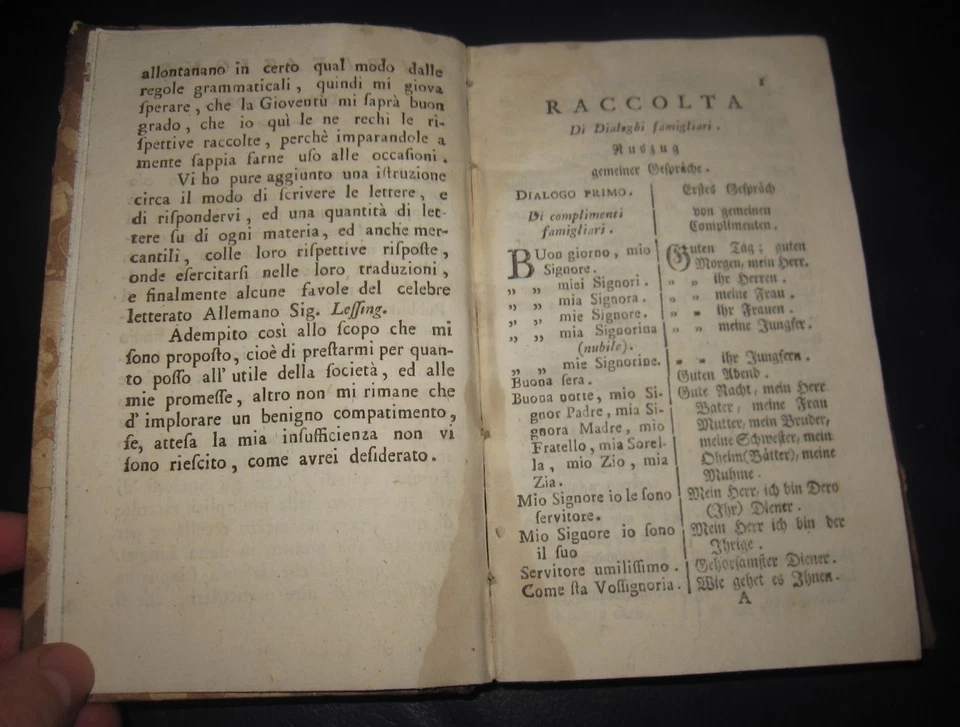 allontanano in certo qual modo dalle
regole grammaticali, quindi mi giova
ſperare, che la Gioventù mi ſaprà buon
grado, che io quì le ne rechi le ri-
ſpettive raccolte, perchè imparandole a
mente ſappia farne uſo alle occaſioni.
Vi ho pure aggiunto una iſtruzione
circa il modo di ſcrivere le lettere, e
di riſpondervi, ed una quantità di let-
tere ſu di ogni materia, ed anche mer-
cantili, colle loro riſpettive riſpoſte,
onde eſercitarſi nelle loro traduzioni,
e finalmente alcune favole del celebre
letterato Allemano Sig. Leſſing.
Adempito così allo ſcopo che mi
ſono propoſto, cioè di preſtarmi per quan-
to poſſo all' utile della ſocietà, ed alle
mie promeſſe, altro non mi rimane che
d' implorare un benigno compatimento,
ſe, atteſa la mia inſufficienza non vi
ſono rieſcito, come avrei deſiderato.
1
RACCOLTA
Di Dialoghi famigliari.
Auszug
gemeiner Geſpräche.
DIALOGO PRIMO.
Di complimenti
famigliari.
BUon giorno, mio
Signore.
„ „ miei Signori.
„ „ mia Signora.
„ „ mie Signore.
„ „ mia Signorina
(nubile).
„ „ mie Signorine.
Buona ſera.
Buona notte, mio Si-
gnor Padre, mia Si-
gnora Madre, mio
Fratello, mia Sorel-
la, mio Zio, mia
Zia.
Mio Signore io le ſono
ſervitore.
Mio Signore io ſono
il ſuo
Servitore umiliſſimo.
Come ſta Voſſignoria.
Erſtes Geſpräch
von gemeinen
Complimenten.
Guten Tag; guten
Morgen, mein Herr.
„ „ ihr Herren.
„ „ meine Frau.
„ „ ihr Frauen.
„ „ meine Jungfer.
„ „ ihr Jungfern.
Guten Abend.
Gute Nacht, mein Herr
Vater, meine Frau
Mutter, mein Bruder,
meine Schweſter, mein
Oheim (Vätter), meine
Muhme.
Mein Herr, ich bin Dero
(Ihr) Diener.
Mein Herr ich bin der
Ihrige.
Gehorſamſter Diener.
Wie gehet es Ihnen.
A